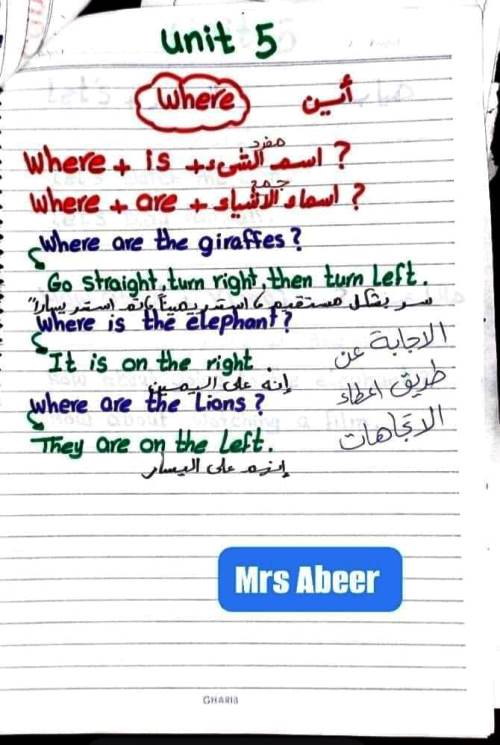 Unit 5
Where أين
Where + is + اسم الشيء مفرد ?
Where + are + اسماء الاشياء جمع ?
Where are the giraffes?
Go straight, turn right, then turn left.
سر بشكل مستقيم، استدر يميناً ثم استدر يساراً
Where is the elephant?
It is on the right.
إنه على اليمين
Where are the Lions?
They are on the left.
على اليسار
الاجابة عن
طريق اعطاء
الاتجاهات
Mrs Abeer
GHARIB